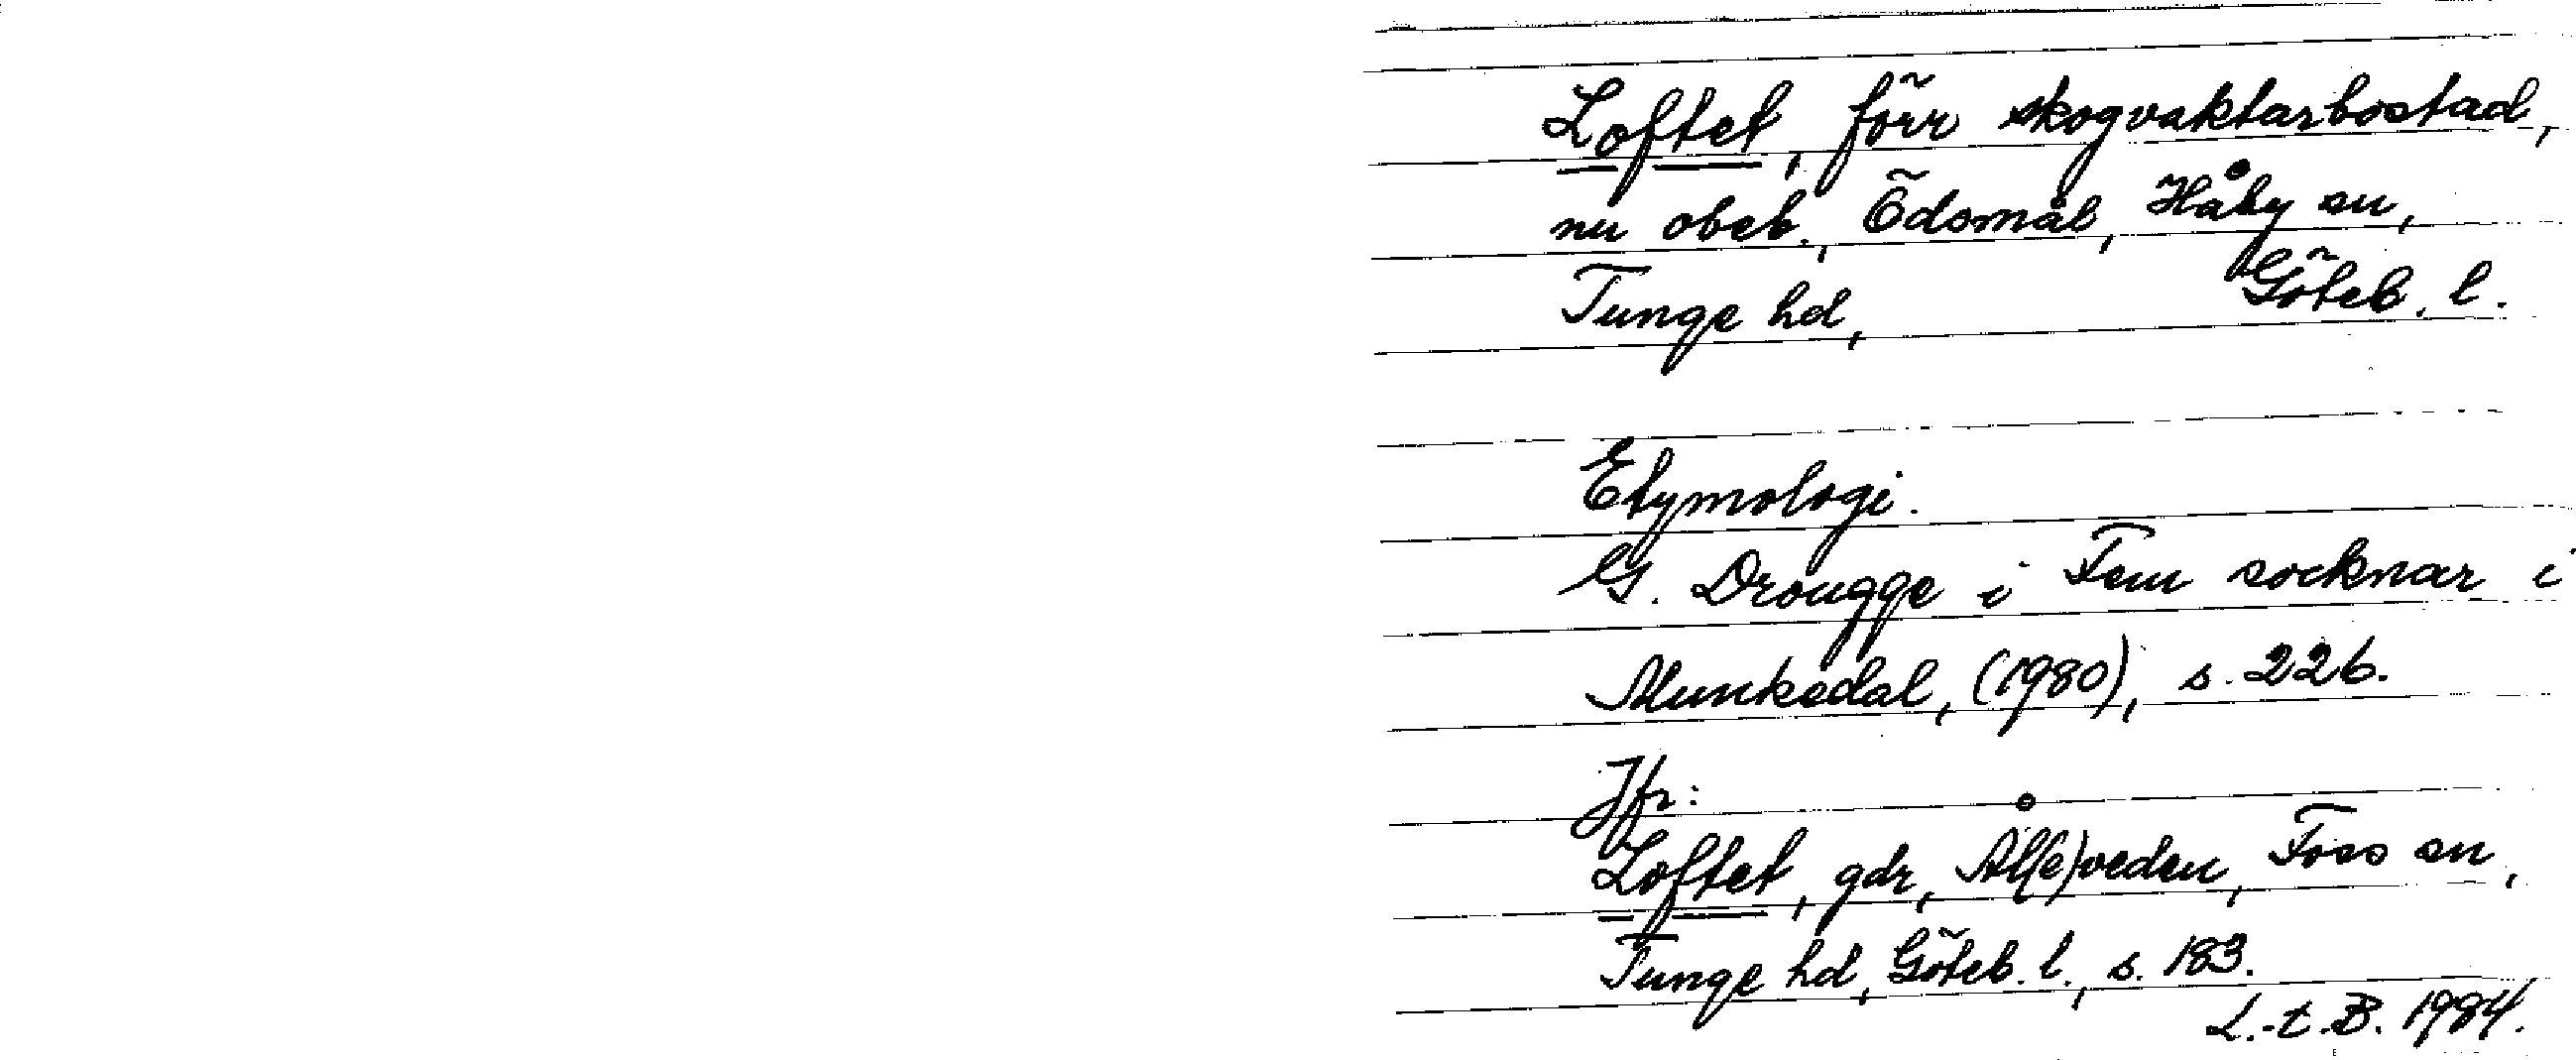 Loftet, förr skogvaktarbostad,
nu obeb., Ödsmål, Håby sn,
Tunge hd, Göteb. l.
Etymologi.
G. Drougge i Fem socknar i
Munkedal, (1980), s. 226.
Jfr:
Loftet, gdr, Ål(e)veden, Foss sn,
Tunge hd, Göteb. l., s. 183.
L.-t.B. 1984.